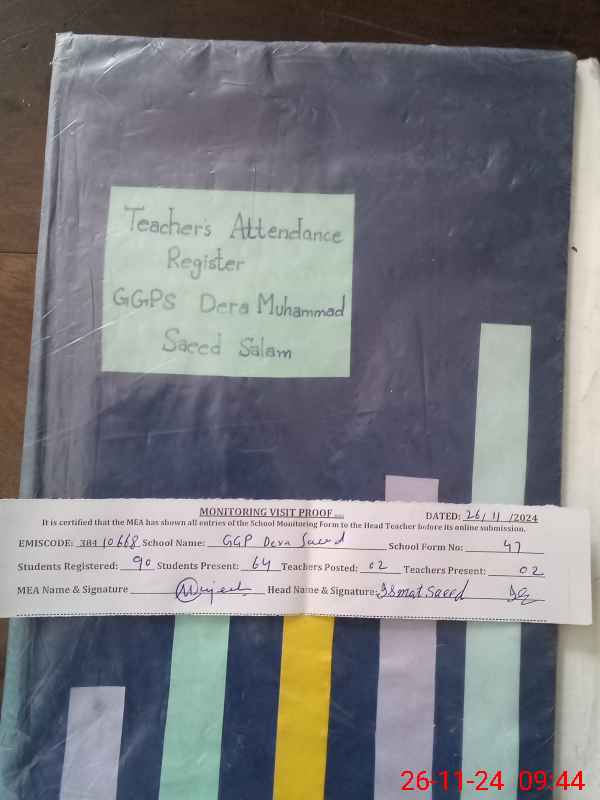 Teacher's Attendance
Register
GGPS Dera Muhammad
Saeed Salam
MONITORING VISIT PROOF
DATED: 26/11/2024
It is certified that the MEA has shown all entries of the School Monitoring Form to the Head Teacher before its online submission.
EMISCODE: 38410668 School Name: GGP Dera Saeed School Form No: 47
Students Registered: 90 Students Present: 64 Teachers Posted: 02 Teachers Present: 02
MEA Name & Signature Head Name & Signature: Ismat Saeed
26-11-24 09:44